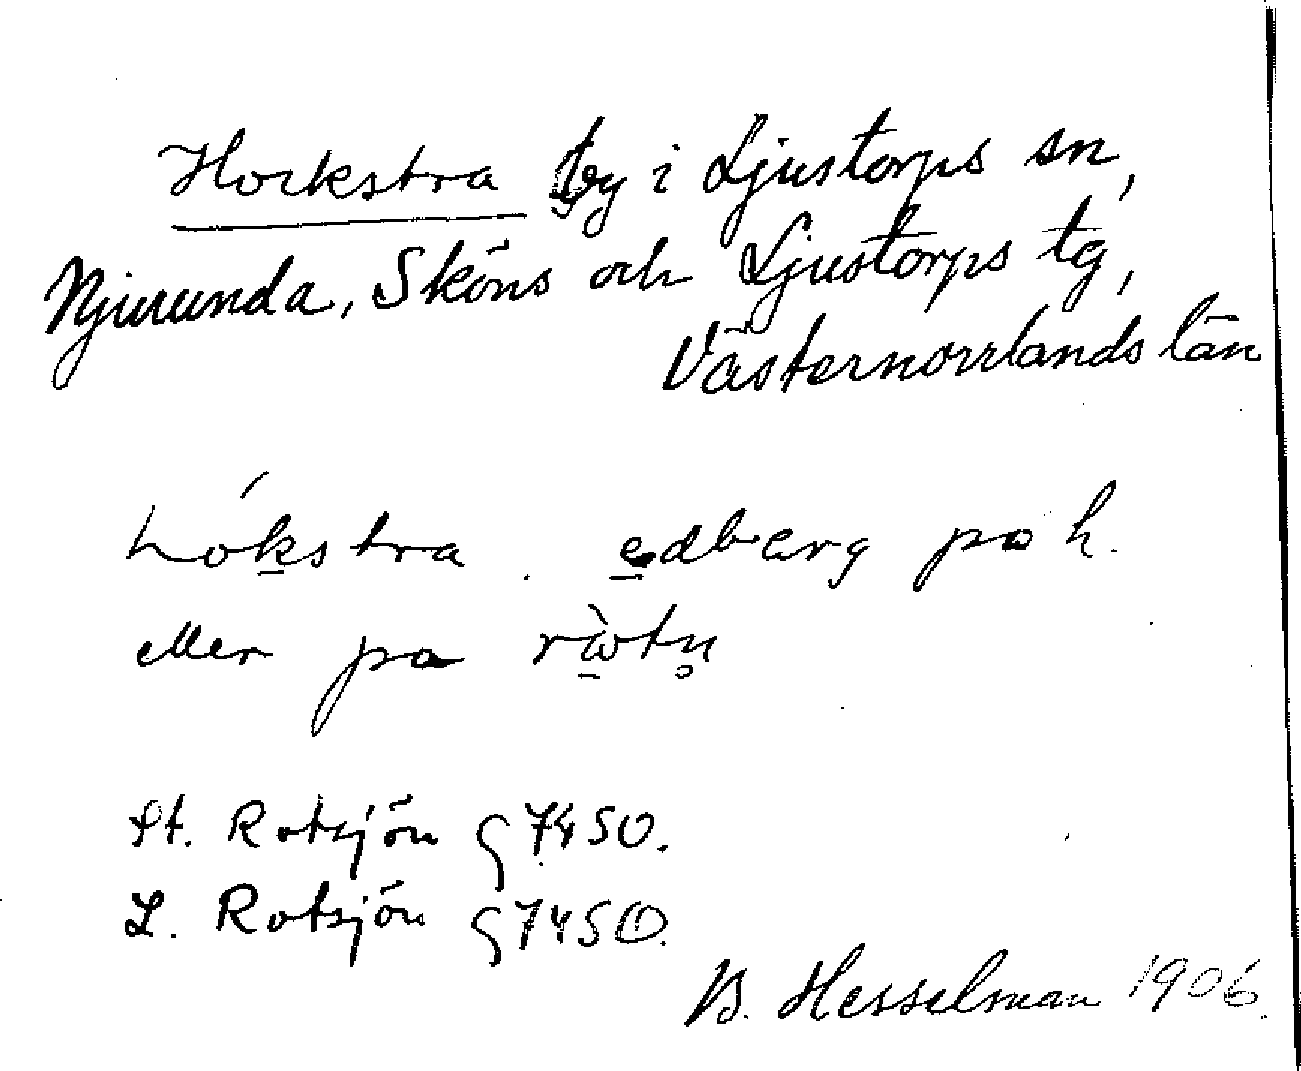 Horkstra by i Ljustorps sn,
Njurunda, Sköns och Ljustorps tg,
Västernorrlands län
hókstra. edbärg pa h.
eller pa ròtn̥
St. Rotsjön 7450.
L. Rotsjön 7450.
B. Hesselman 1906.